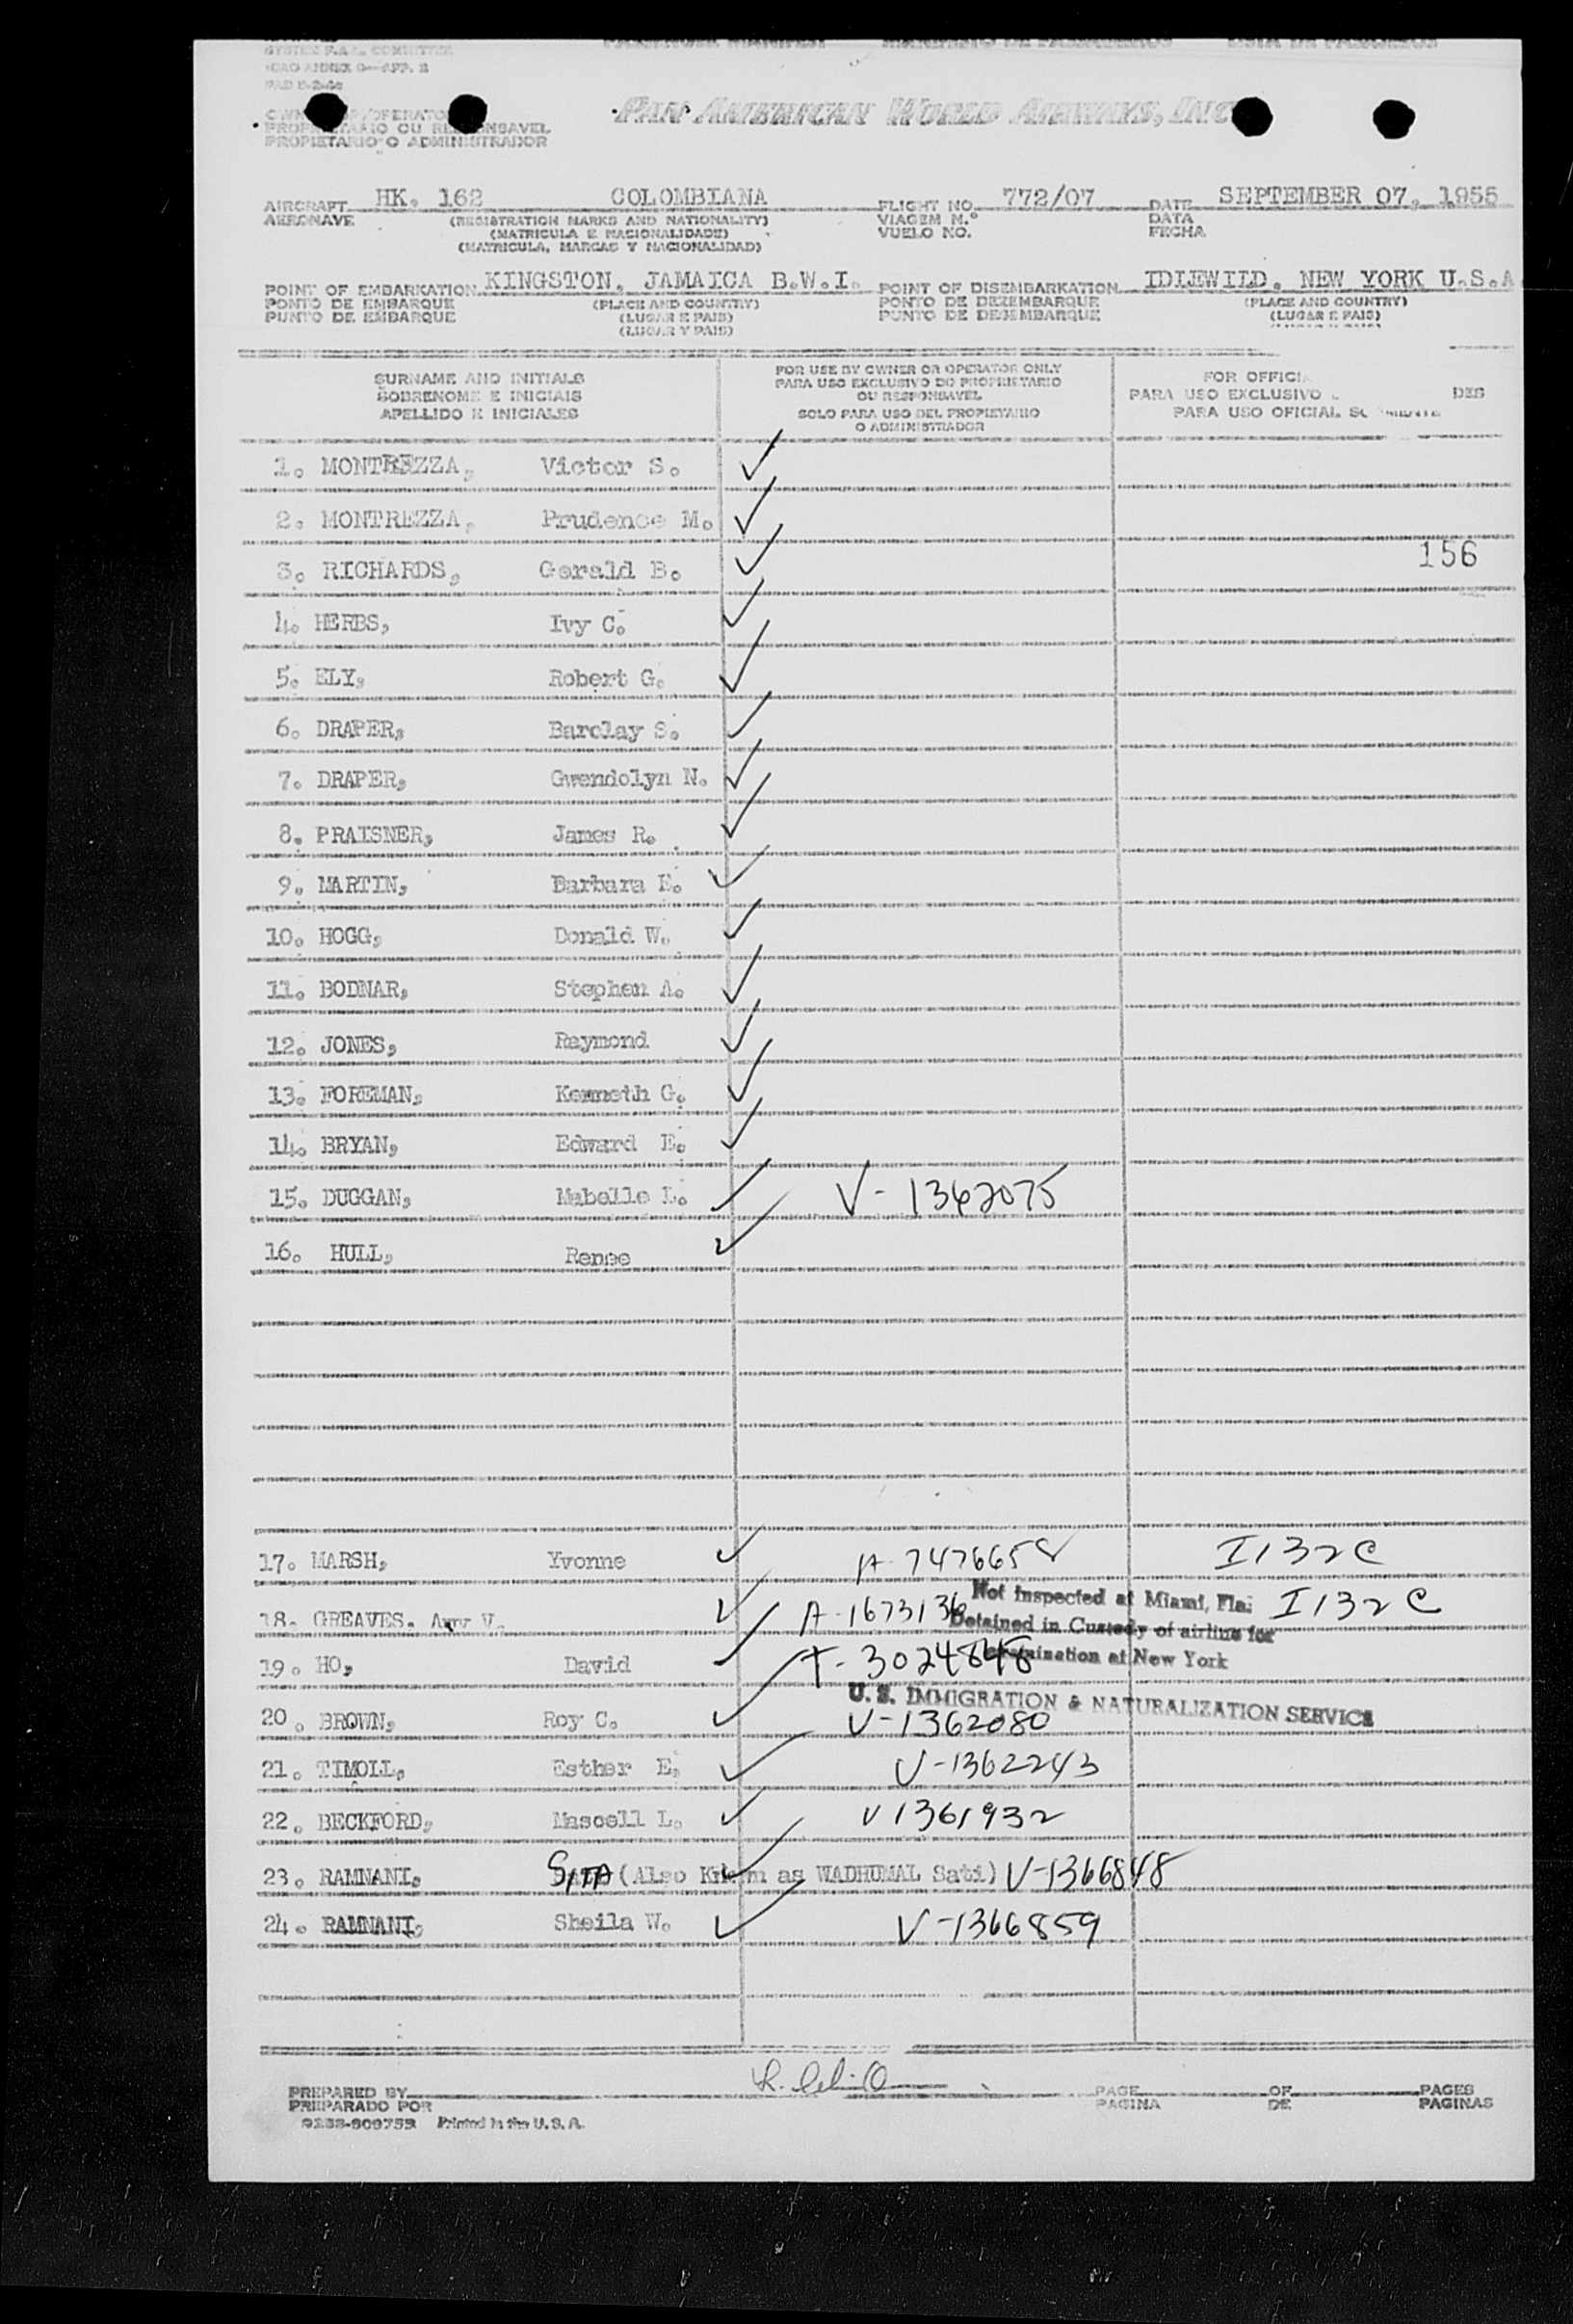 PASSENGER MANIFEST MANIFESTO DE PASSAGEIROS LISTA DE PASAJEROS
SYSTEM F.A.L. COMMITTEE
ICAO ANNEX 9—APP. 2
OPERATOR
PROPRIETARIO OU RESPONSAVEL
PROPIETARIO O ADMINISTRADOR
PAN AMERICAN WORLD AIRWAYS, INC
AIRCRAFT HK. 162 COLOMBIANA FLIGHT NO. 772/07 DATE SEPTEMBER 07, 1955
AERONAVE (REGISTRATION MARKS AND NATIONALITY) VIAGEM N.º DATA
(MATRICULA E NACIONALIDADE) VUELO NO. FECHA
(MATRICULA, MARCAS Y NACIONALIDAD)
POINT OF EMBARKATION KINGSTON, JAMAICA B.W.I. POINT OF DISEMBARKATION IDLEWILD, NEW YORK U.S.A
PONTO DE EMBARQUE (PLACE AND COUNTRY) PONTO DE DEZEMBARQUE (PLACE AND COUNTRY)
PUNTO DE EMBARQUE (LUGAR E PAIS) PUNTO DE DESEMBARQUE (LUGAR E PAIS)
(LUGAR Y PAIS)
SURNAME AND INITIALS
SOBRENOME E INICIAIS
APELLIDO E INICIALES
FOR USE BY OWNER OR OPERATOR ONLY
PARA USO EXCLUSIVO DO PROPRIETARIO
OU RESPONSAVEL
SOLO PARA USO DEL PROPIETARIO
O ADMINISTRADOR
FOR OFFICI
PARA USO EXCLUSIVO DES
PARA USO OFICIAL
1. MONTREZZA, Victor S. ✓
2. MONTREZZA, Prudence M. ✓
156
3. RICHARDS, Gerald B. ✓
4. HERBS, Ivy C. ✓
5. ELY, Robert G. ✓
6. DRAPER, Barclay S. ✓
7. DRAPER, Gwendolyn N. ✓
8. PRAISNER, James R. ✓
9. MARTIN, Barbara E. ✓
10. HOGG, Donald W. ✓
11. BODNAR, Stephen A. ✓
12. JONES, Raymond ✓
13. FOREMAN, Kenneth G. ✓
14. BRYAN, Edward E. ✓
15. DUGGAN, Mabelle L. ✓ V-1362075
16. HULL, Renee ✓
17. MARSH, Yvonne ✓ A-7476658 I132C
Not Inspected at Miami, Fla.
18. GREAVES, Amy V. ✓ A-1673136 I132C
Detained in Custody of airline for
19. HO, David ✓ T-3024848
examination at New York
U. S. IMMIGRATION & NATURALIZATION SERVICE
20. BROWN, Roy C. ✓ V-1362080
21. TIMOLL, Esther E. ✓ V-1362243
22. BECKFORD, Mascell L. ✓ V1361932
23. RAMNANI, SITA (Also Known as WADHUMAL Sati) V-1366848
24. RAMNANI, Sheila W. ✓ V-1366859
PREPARED BY PAGE OF PAGES
PREPARADO POR PAGINA DE PAGINAS
Printed in the U.S.A.